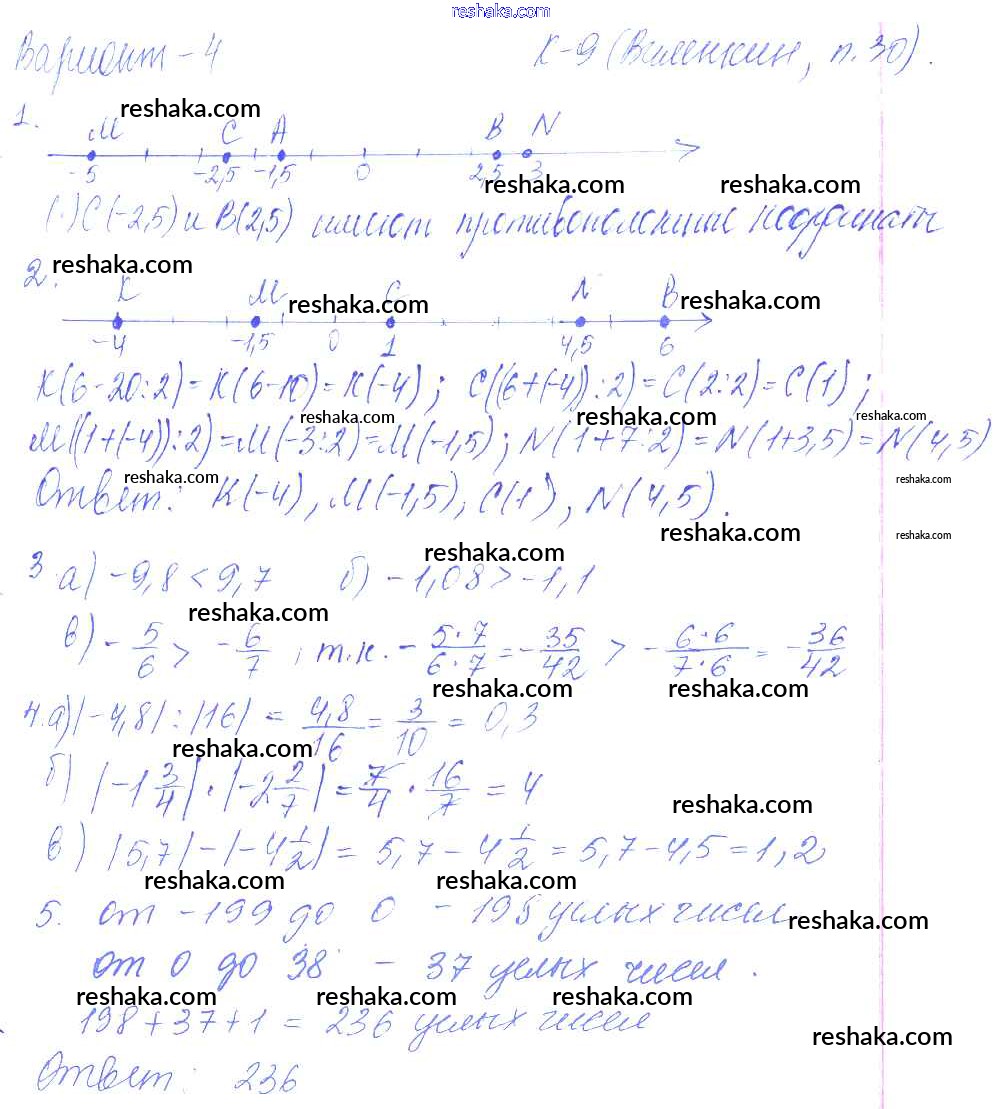 reshaka.com
Вариант - 4 К-9 (Виленкин, п. 30).
reshaka.com
1.
M C A B N
-5 -2,5 -1,5 0 2,5 3
reshaka.com reshaka.com
(·) C(-2,5) и B(2,5) имеют противоположные координаты
reshaka.com
2.
K M C N B
reshaka.com reshaka.com
-4 -1,5 0 1 4,5 6
K(6-20:2)=K(6-10)=K(-4); C((6+(-4)):2)=C(2:2)=C(1);
reshaka.com reshaka.com reshaka.com
M((1+(-4)):2)=M(-3:2)=M(-1,5); N(1+7:2)=N(1+3,5)=N(4,5)
reshaka.com reshaka.com
Ответ: K(-4), M(-1,5), C(1), N(4,5).
reshaka.com reshaka.com
reshaka.com
3 а) -9,8 < 9,7 б) -1,08 > -1,1
reshaka.com
в) -5/6 > -6/7, т.к. -5·7/6·7 = -35/42 > -6·6/7·6 = -36/42
reshaka.com reshaka.com
4. а) |-4,8| : |16| = 4,8/16 = 3/10 = 0,3
reshaka.com
б) |-1 3/4| · |-2 2/7| = 7/4 · 16/7 = 4
reshaka.com
в) |5,7| - |-4 1/2| = 5,7 - 4 1/2 = 5,7 - 4,5 = 1,2
reshaka.com reshaka.com
5. от -199 до 0 - 198 целых чисел
reshaka.com
от 0 до 38 - 37 целых чисел.
reshaka.com reshaka.com reshaka.com
198 + 37 + 1 = 236 целых чисел
reshaka.com
Ответ: 236